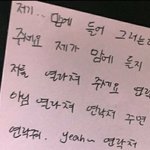 저기.. 맘에 들어 그러는데
주세요 제가 맘에 들지
저를 연락처 주세요
아님 연락처 연락처 주면
연락처. yeah~ 연락처